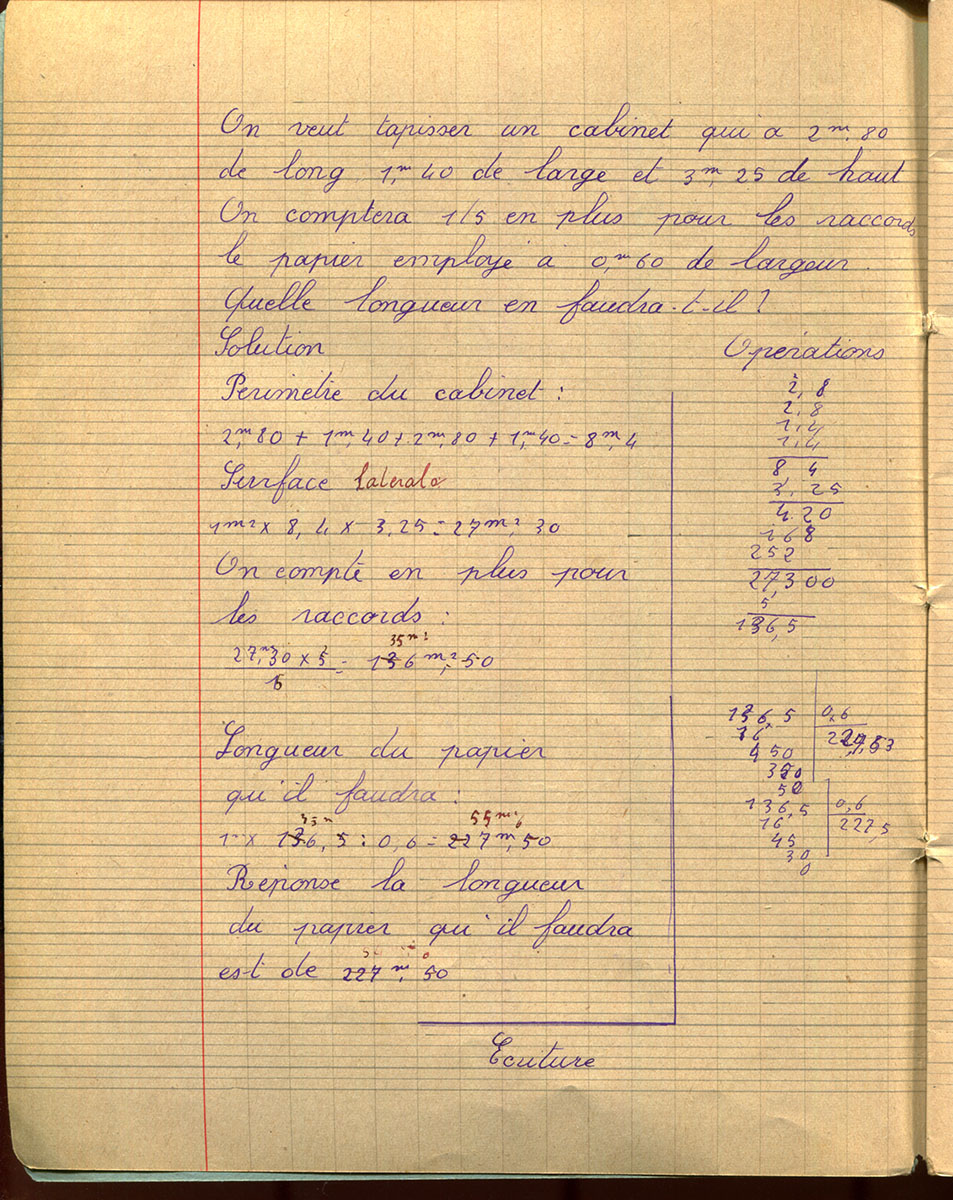 On veut tapisser un cabinet qui a 2m,80
de long 1,m40 de large et 3m,25 de haut
On comptera 1/5 en plus pour les raccords
le papier employé a 0,m60 de largeur.
Quelle longueur en faudra-t-il ?
Solution
Opérations
Perimètre du cabinet :
2,m80 + 1m,40 + 2m,80 + 1m,40 = 8m,4
Surface latérale
1m² x 8,4 x 3,25 = 27m² 30
On compte en plus pour
les raccords :
35m²
27,m²30 x 5 = 136m²,50
5
Longueur du papier
qu'il faudra :
55m
1m x 136,5 : 0,6 = 227m,50
Réponse la longueur
du papier qu'il faudra
est de 227m,50
2,8
2,8
1,4
1,4
8 4
3,25
4 20
16 8
252
27,300
5
136,5
136,5 0,6
16
450
50
136,5 0,6
16 227,5
45
30
0
Ecriture